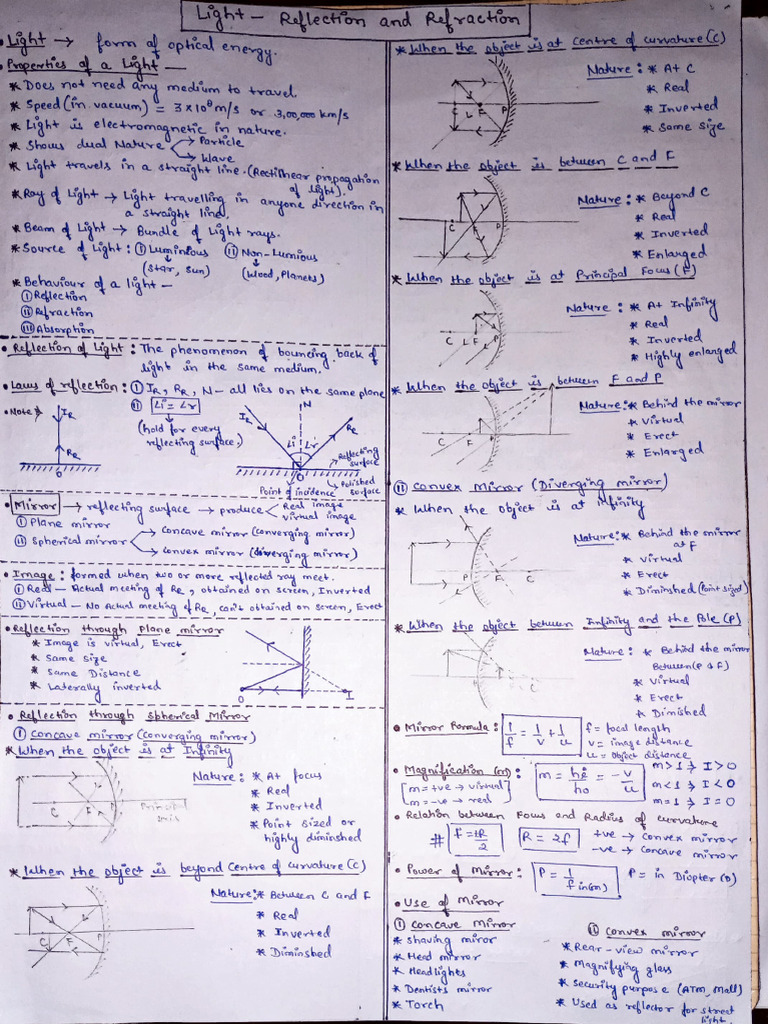 Light - Reflection and Refraction
• Light → form of optical energy.
• Properties of a Light —
* Does not need any medium to travel.
* Speed (in vacuum) = 3×10⁸ m/s or 3,00,000 km/s
* Light is electromagnetic in nature.
* Shows dual Nature
Particle
Wave
* Light travels in a straight line. (Rectilinear propagation of light).
* Ray of Light → Light travelling in anyone direction in a straight line.
* Beam of Light → Bundle of Light rays.
* Source of Light : (i) Luminious (ii) Non-Lumious
(Star, Sun) (Wood, Planets)
* Behaviour of a light —
(i) Reflection
(ii) Refraction
(iii) Absorption
• Reflection of Light : The phenomenon of bouncing back of
light in the same medium.
• Laws of reflection : (i) IR, RR, N - all lies on the same plane
(ii) ∠i = ∠r
(hold for every
reflecting surface.)
• Note *
IR
RR
O
N
IR
RR
∠i ∠r
O
Reflecting surface
Polished surface
Point of incidence
• Mirror → reflecting surface → produce
Real image
virtual image
(i) Plane mirror
(ii) Spherical mirror
→ concave mirror (converging mirror)
→ convex mirror (diverging mirror)
• Image : formed when two or more reflected ray meet.
(i) Real — Actual meeting of RR, obtained on screen, Inverted
(ii) Virtual - No Actual meeting of RR, can't obtained on screen, Erect
• Reflection through plane mirror
* Image is virtual, Erect
* Same size
* Same Distance
* Laterally inverted
O I
• Reflection through spherical Mirror
(i) concave mirror (converging mirror)
* When the object is at Infinity
C F P
Principal axis
Nature : * At focus
* Real
* Inverted
* Point sized or
highly diminished
* When the object is beyond Centre of curvature (C)
C F P
Nature : * Between C and F
* Real
* Inverted
* Diminshed
* When the object is at Centre of curvature (C)
C F P
Nature : * At C
* Real
* Inverted
* Same size
* When the object is between C and F
C F P
Nature : * Beyond C
* Real
* Inverted
* Enlarged
* When the object is at Principal Focus (F)
C F P
Nature : * At Infinity
* Real
* Inverted
* Highly enlarged
* When the object is between F and P
C F P
Nature : * Behind the mirror
* Virtual
* Erect
* Enlarged
(ii) Convex Mirror (Diverging mirror)
* When the object is at infinity
P F C
Nature : * Behind the mirror
at F
* Virtual
* Erect
* Diminshed (point sized)
* When the object between Infinity and the Pole (P)
C
Nature : * Behind the mirror
Between (P & F)
* Virtual
* Erect
* Dimished
• Mirror Formula : 1/f = 1/v + 1/u
f = focal length
v = image distance
u = object distance
• Magnification (m) : m = hi/ho = -v/u
[m = +ve → virtual]
[m = -ve → real]
m > 1 → I > O
m < 1 → I < O
m = 1 → I = O
• Relation between Focus and Radius of curvature
# f = ±R/2 R = 2f
+ve → convex mirror
-ve → concave mirror
• Power of Mirror : P = 1/f in (m) P = in Diopter (D)
• Use of Mirror
(i) concave mirror
* shaving miror
* Head mirror
* Headlights
* Dentists mirror
* Torch
(ii) convex mirror
* Rear-view mirror
* Magnifying glass
* Security purpose (ATM, Mall)
* Used as reflector for street light